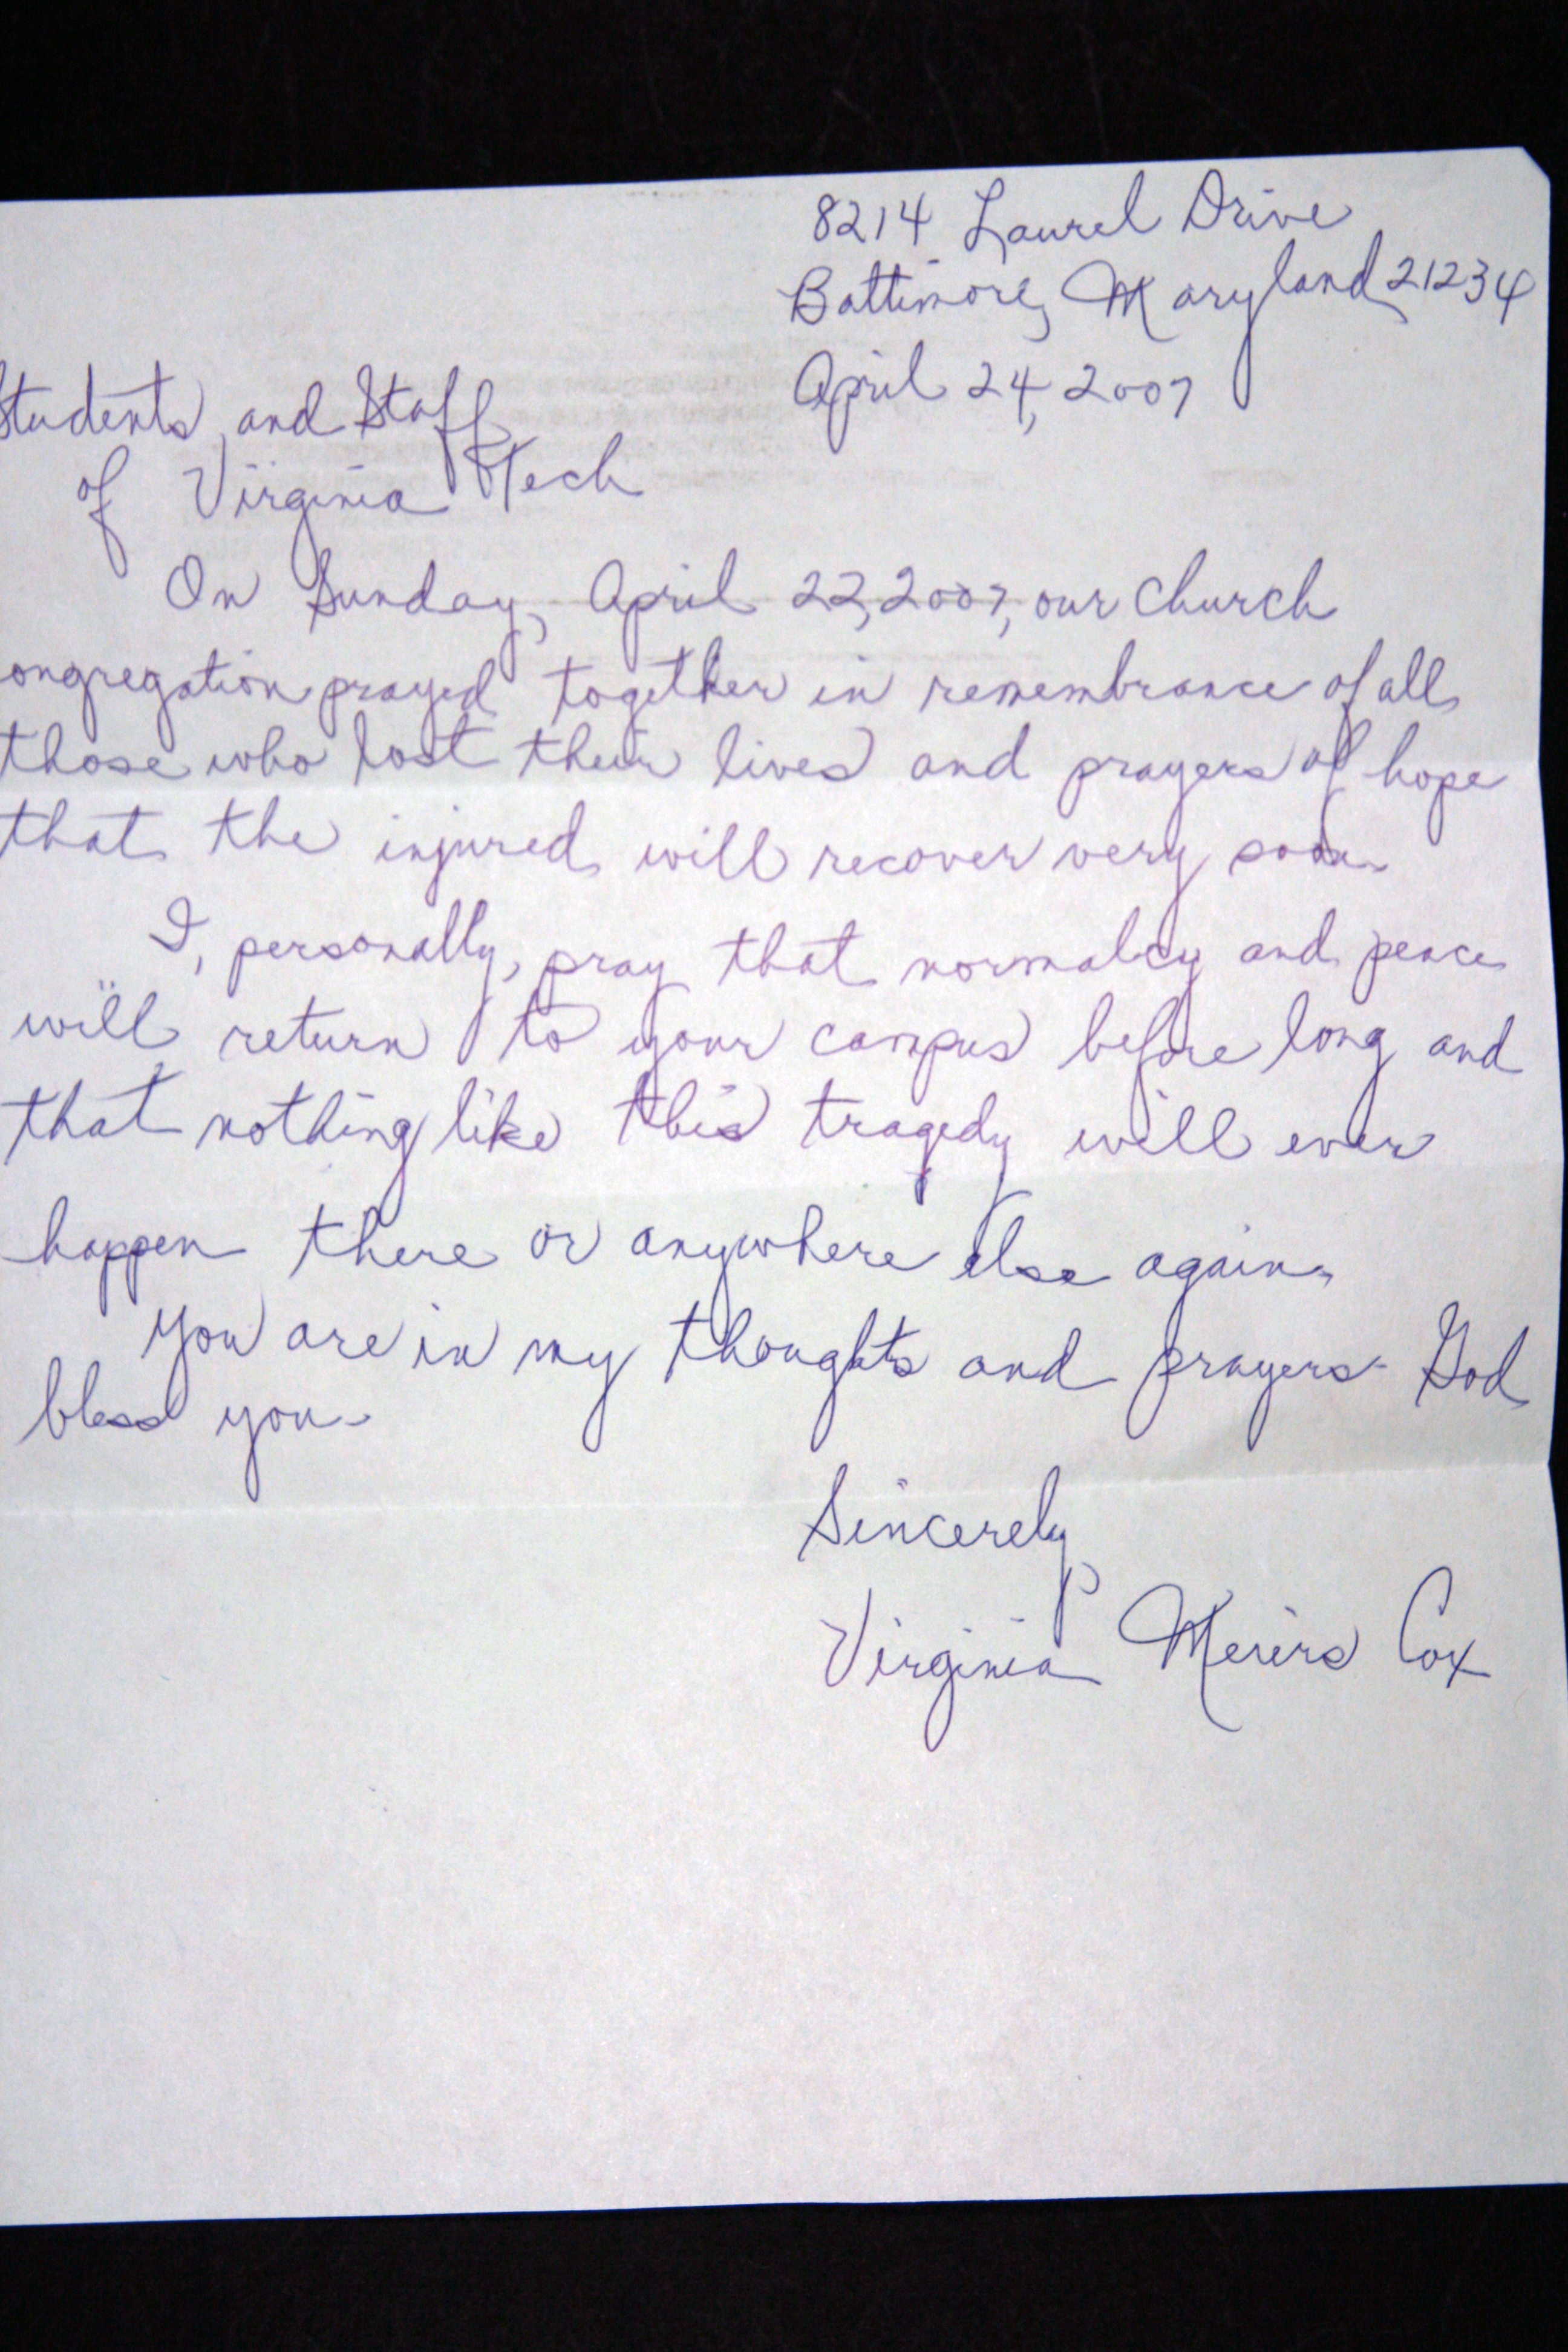 8214 Laurel Drive
Baltimore, Maryland 21234
April 24, 2007
Students and Staff
of Virginia Tech
On Sunday, April 22, 2007, our church
ongregation prayed together in remembrance of all
those who lost their lives and prayers of hope
that the injured will recover very soon.
I, personally, pray that normalcy and peace
will return to your campus before long and
that nothing like this tragedy will ever
happen there or anywhere else again.
You are in my thoughts and prayers. God
bless you.
Sincerely,
Virginia Cox